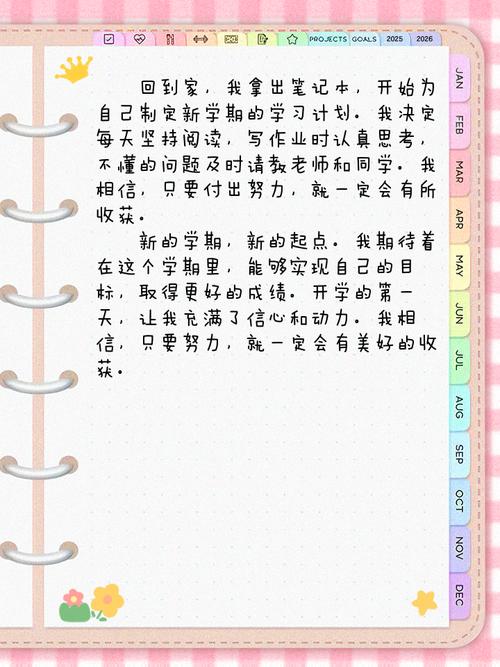 PROJECTS GOALS 2025 2026
回到家，我拿出笔记本，开始为
自己制定新学期的学习计划。我决定
每天坚持阅读，写作业时认真思考，
不懂的问题及时请教老师和同学。我
相信，只要付出努力，就一定会有所
收获。
新的学期，新的起点。我期待着
在这个学期里，能够实现自己的目
标，取得更好的成绩。开学的第一
天，让我充满了信心和动力。我相
信，只要努力，就一定会有美好的收
获。
JAN
FEB
MAR
APR
MAY
JUN
JUL
AUG
SEP
OCT
NOV
DEC